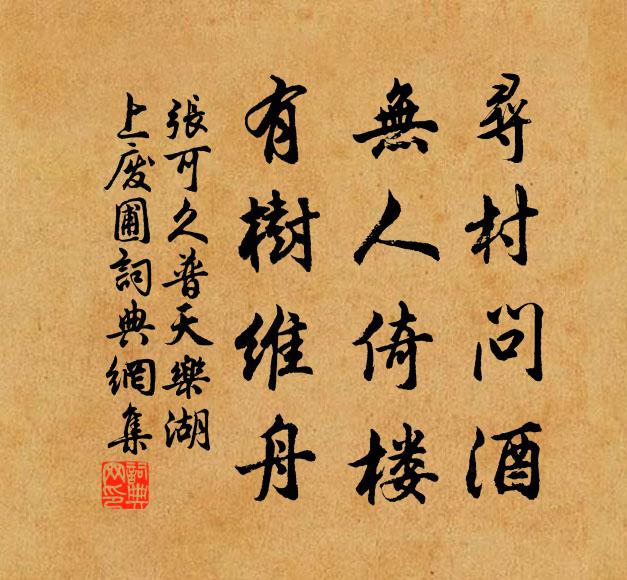 尋村問酒
無人倚楼
有樹維舟
張可久普天樂湖
上廢圃詞典網集
詞典
网印